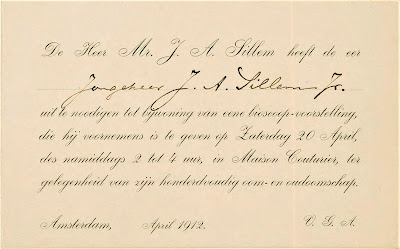 De Heer Mr. J. A. Sillem heeft de eer
Jongeheer J. A. Sillem Jr.
uit te noodigen tot bijwoning van eene bioscoop-voorstelling,
die hij voornemens is te geven op Zaterdag 20 April,
des namiddags 2 tot 4 uur, in Maison Couturier, ter
gelegenheid van zijn honderdvoudig oom- en oudoomschap.
Amsterdam, April 1912. V. G. A.